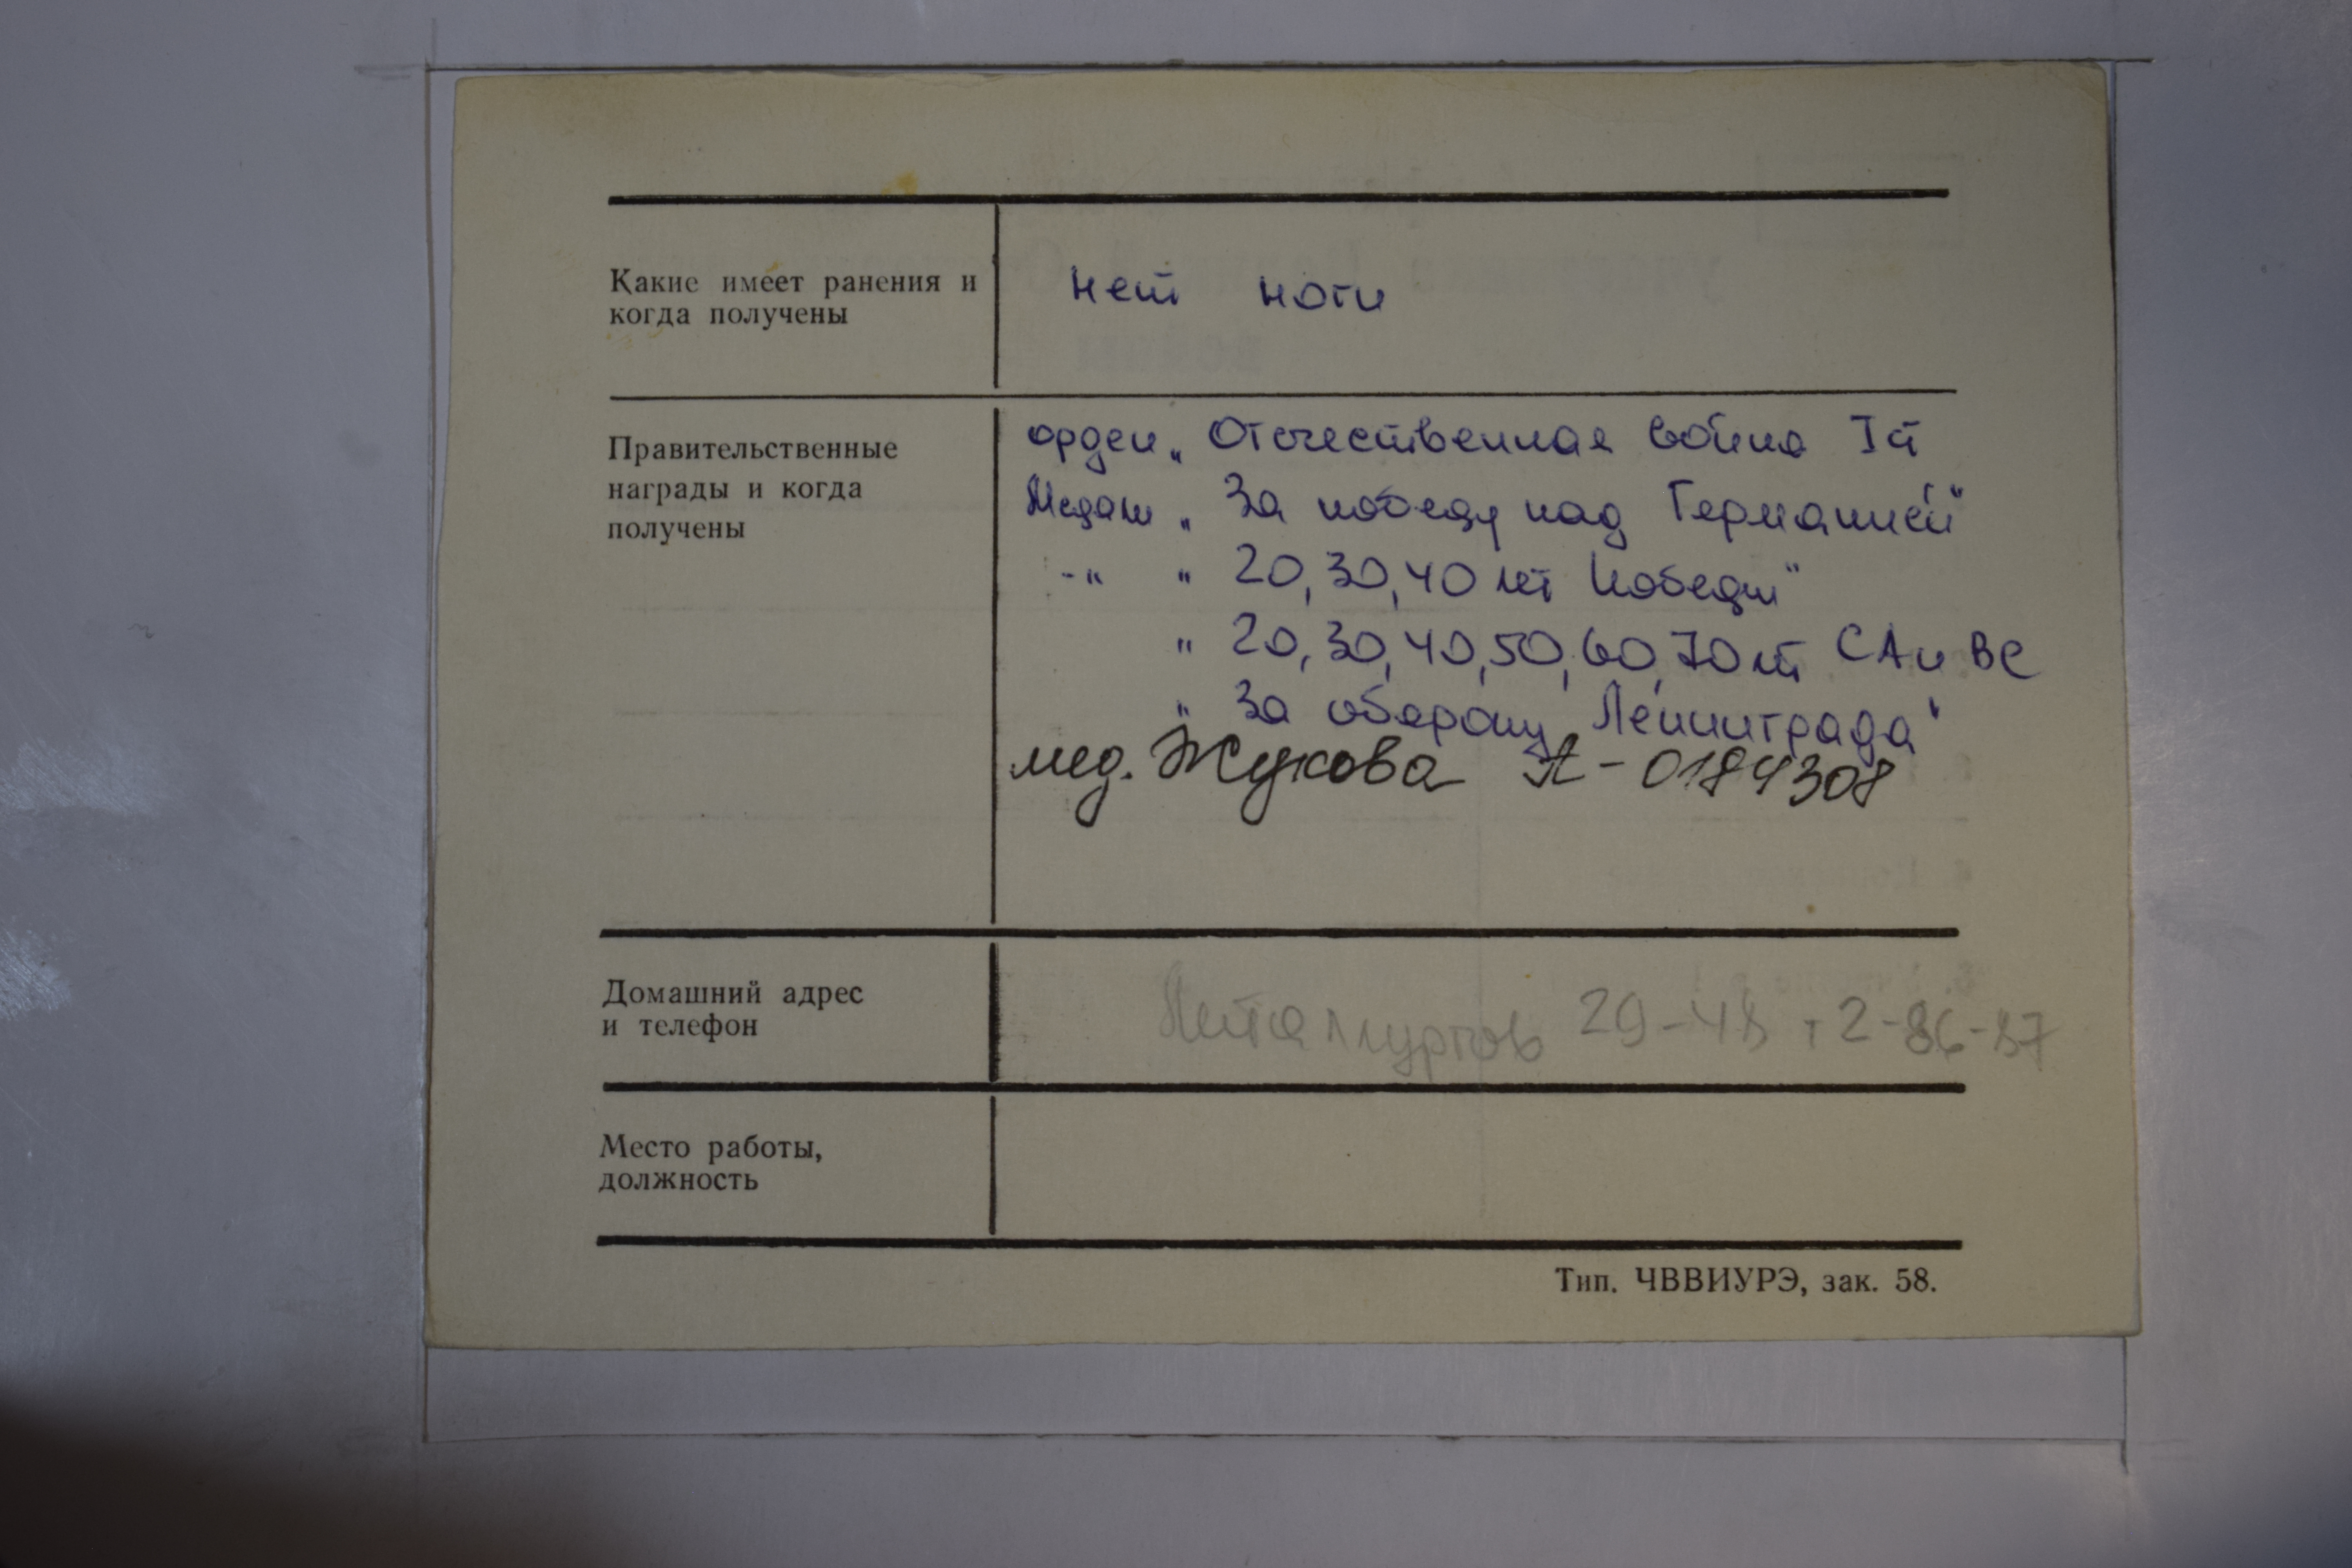 Какие имеет ранения и
когда получены
нет ноги
Правительственные
награды и когда
получены
орден „ Отечественная война I ст
Медали „ За победу над Германией"
-"- " 20, 30, 40 лет Победы"
" 20, 30, 40, 50, 60, 70 лет СА и ВС
" За оборону Ленинграда"
мед. Жукова А - 0184308
Домашний адрес
и телефон
Металлургов 29-48 т 2-86-87
Место работы,
должность
Тип. ЧВВИУРЭ, зак. 58.